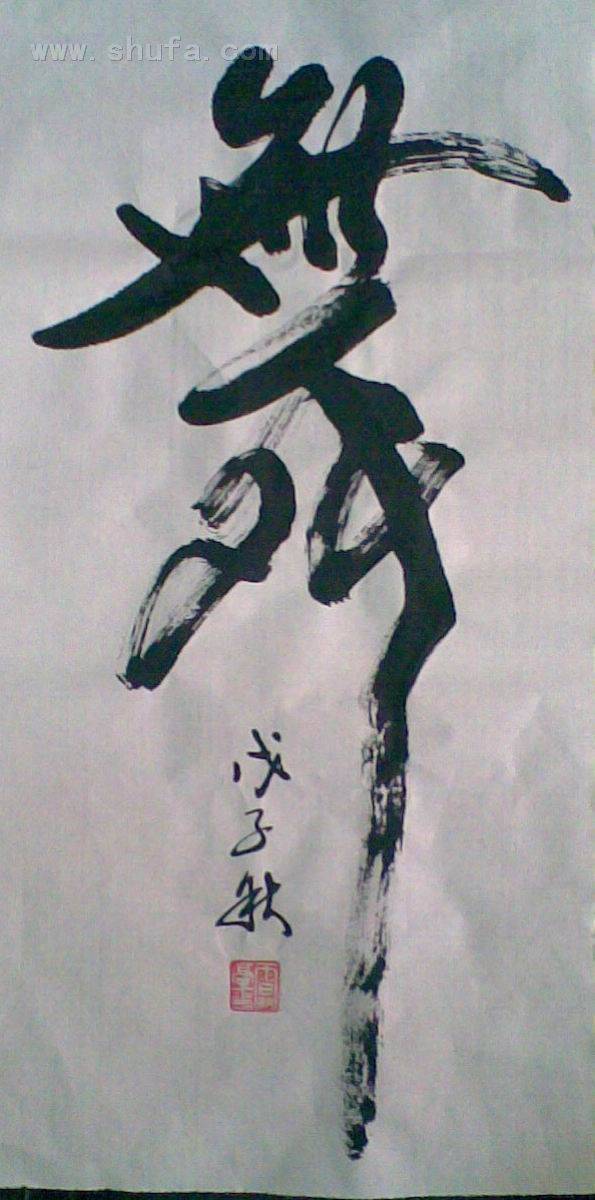 www.shufa.com
舞
戊子秋